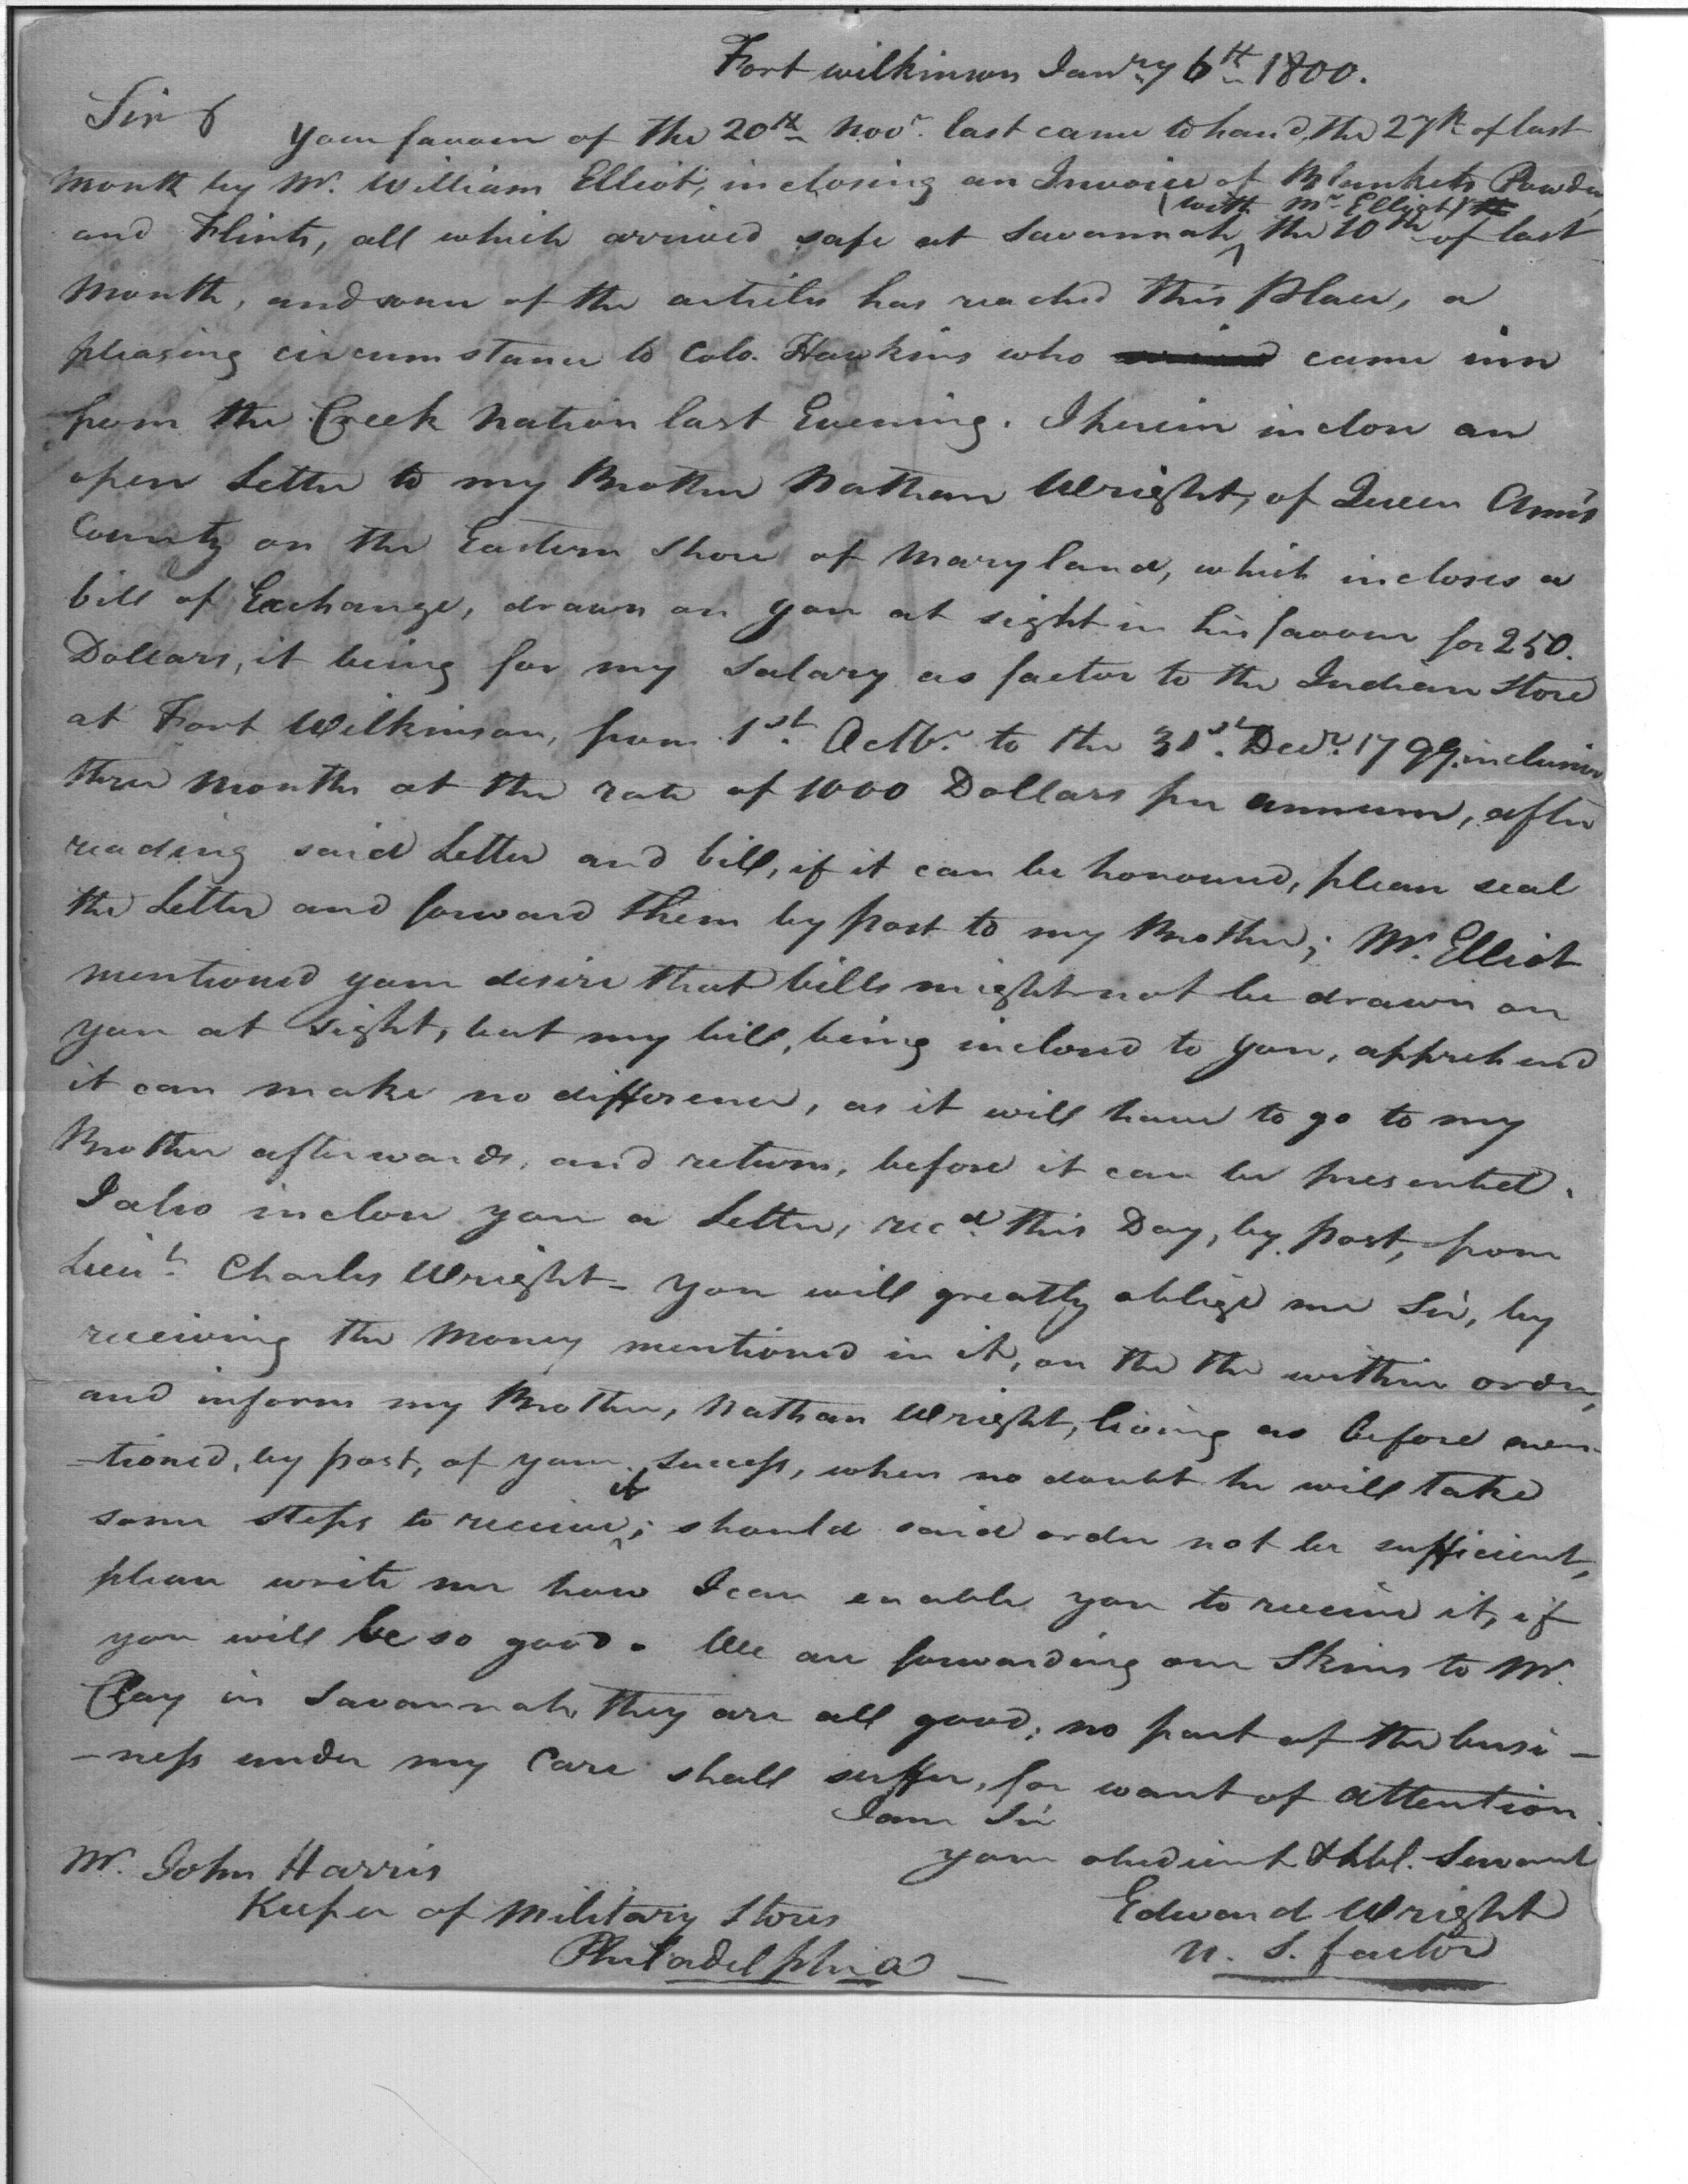 Fort wilkinson Janry 6th 1800.
Sir
your favour of the 20th Novr. last came to hand, the 27th of last
Month by Mr. William Elliot, inclosing an Invoice of Blankets Powder,
(with Mr. Elliot)
and Flints, all which arrived safe at Savannah, the 10th of last
Month, and some of the articles has reached this Place, a
pleasing circumstance to Colo. Hawkins who came inn
from the Creek Nation last Evening. I herein inclose an
open Letter to my Brother Nathan Wright, of Queen Ann's
County on the Eastern Shore of Maryland, which incloses a
bill of Exchange, drawn on you at sight in his favour for 250.
Dollars, it being for my Salary as factor to the Indian Store
at Fort Wilkinson, from 1st. Octbr. to the 31st. Decr. 1799. inclusive
three Months at the rate of 1000 Dollars per annum, after
reading said Letter and bill, if it can be honoured, please seal
the Letter and forward them by post to my Brother; Mr. Elliot
mentioned your desire that bills might not be drawn on
you at sight, but my bill, being inclosed to you, apprehend
it can make no difference, as it will have to go to my
Brother afterwards, and return, before it can be presented.
I also inclose you a Letter, recd. this Day, by post, from
Lieut. Charles Wright - You will greatly oblige me Sir, by
receiving the Money mentioned in it, on the the within order,
and inform my Brother, Nathan Wright, living as before men-
-tioned, by post, of your success, when no doubt he will take
it
some steps to receive; should said order not be sufficient,
please write me how I can enable you to receive it, if
you will be so good. We are forwarding our Skins to Mr.
Clay in Savannah, they are all good; no part of the busi-
-ness under my Care shall suffer, for want of attention.
I am Sir
your obedient & hbl. Servant
Mr. John Harris
Edward Wright
Keeper of Military Stores
U. S. factor
Philadelphia